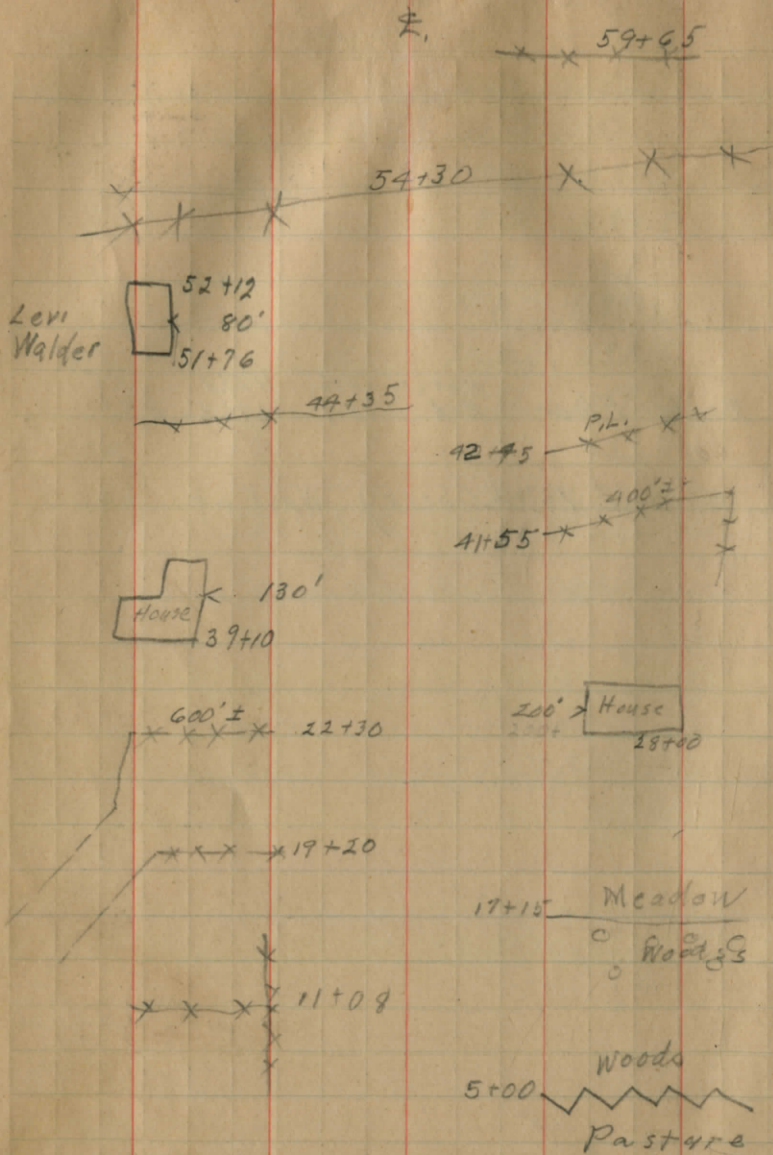 ℄.
59+65
54+30
52+12
Levi
80'
Walder
51+76
44+35
P.L.
42+45
400'±
41+55
130'
House
39+10
600'±
22+30
200'
House
28+00
19+20
17+15
Meadow
Woods
11+08
Woods
5+00
Pasture